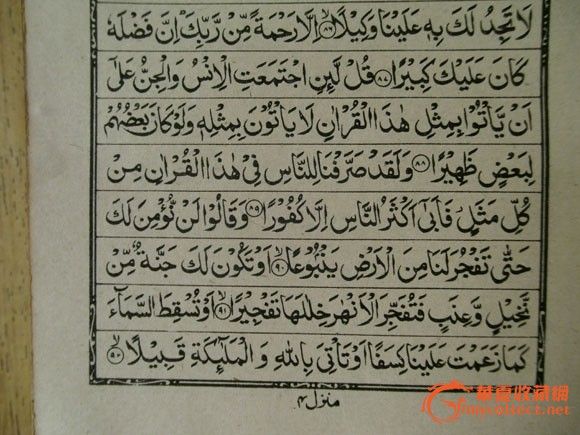 لَا تَجِدُ لَكَ بِهٖ عَلَيْنَا وَكِيْلًا ﴿۸۶﴾ اِلَّا رَحْمَةً مِّنْ رَّبِّكَ اِنَّ فَضْلَهٗ
كَانَ عَلَيْكَ كَبِيْرًا ﴿۸۷﴾ قُلْ لَّئِنِ اجْتَمَعَتِ الْاِنْسُ وَالْجِنُّ عَلٰٓى
اَنْ يَّاْتُوْا بِمِثْلِ هٰذَا الْقُرْاٰنِ لَا يَاْتُوْنَ بِمِثْلِهٖ وَلَوْ كَانَ بَعْضُهُمْ
لِبَعْضٍ ظَهِيْرًا ﴿۸۸﴾ وَلَقَدْ صَرَّفْنَا لِلنَّاسِ فِيْ هٰذَا الْقُرْاٰنِ مِنْ
كُلِّ مَثَلٍ فَاَبٰٓى اَكْثَرُ النَّاسِ اِلَّا كُفُوْرًا ﴿۸۹﴾ وَقَالُوْا لَنْ نُّؤْمِنَ لَكَ
حَتّٰى تَفْجُرَ لَنَا مِنَ الْاَرْضِ يَنْۢبُوْعًا ﴿۹۰﴾ اَوْ تَكُوْنَ لَكَ جَنَّةٌ مِّنْ
نَّخِيْلٍ وَّعِنَبٍ فَتُفَجِّرَ الْاَنْهٰرَ خِلٰلَهَا تَفْجِيْرًا ﴿۹۱﴾ اَوْ تُسْقِطَ السَّمَآءَ
كَمَا زَعَمْتَ عَلَيْنَا كِسَفًا اَوْ تَاْتِيَ بِاللّٰهِ وَالْمَلٰٓئِكَةِ قَبِيْلًا ﴿۹۲﴾
منزل ۴
华夏收藏网
mycollect.net